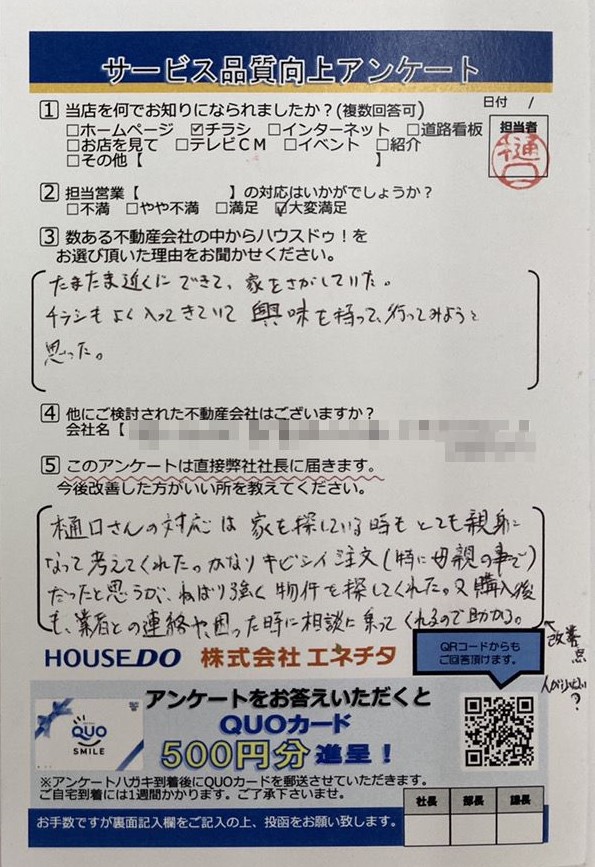 サービス品質向上アンケート
1 当店を何でお知りになられましたか？(複数回答可)
日付 /
□ホームページ ☑チラシ □インターネット □道路看板
□お店を見て □テレビCM □イベント □紹介
□その他【 】
担当者
樋口
2 担当営業【 】の対応はいかがでしょうか？
□不満 □やや不満 □満足 ☑大変満足
3 数ある不動産会社の中からハウスドゥ！を
お選び頂いた理由をお聞かせください。
たまたま近くにできて、家をさがしていた。
チラシもよく入ってきていて興味を持って、行ってみようと
思った。
4 他にご検討された不動産会社はございますか？
会社名【
5 このアンケートは直接弊社社長に届きます。
今後改善した方がいい所を教えてください。
樋口さんの対応は家を探している時もとても親身に
なって考えてくれた。かなりキビシイ注文(特に母親の事で)
だったと思うが、ねばり強く物件を探してくれた。又購入後
も、業者との連絡や、困った時に相談に乗ってくれるので助かる。
←改善点
？
HOUSE DO 株式会社 エネチタ
QRコードからも
ご回答頂けます。
アンケートをお答えいただくと
QUOカード
500円分 進呈！
QUO
SMILE
※アンケートハガキ到着後にQUOカードを郵送させていただきます。
ご自宅到着には1週間かかります。ご了承下さいませ。
社長 部長 課長
お手数ですが裏面記入欄をご記入の上、投函をお願い致します。